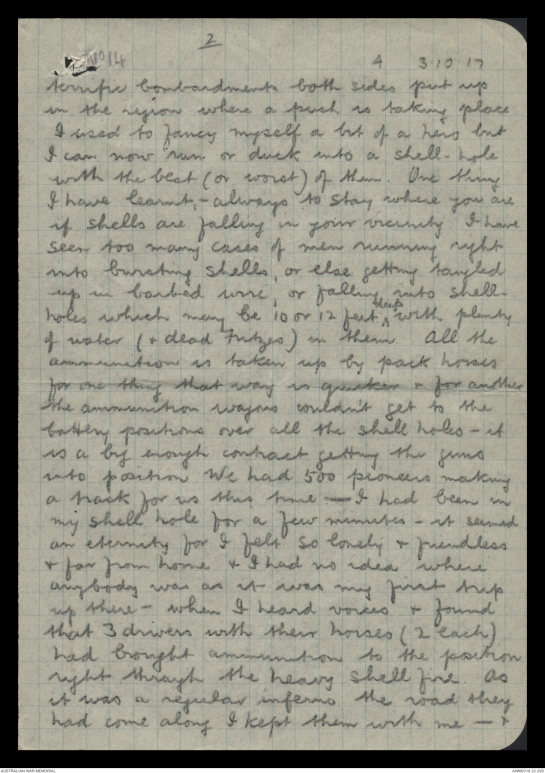 2
No 14
4 3.10.17
terrific bombardments both sides put up
in the region where a push is taking place
I used to fancy myself a bit of a hero but
I can now run or duck into a shell-hole
with the best (or worst) of them. One thing
I have learnt, - always to stay where you are
if shells are falling in your vicinity I have
seen too many cases of men running right
into bursting shells, or else getting tangled
up in barbed wire, or falling into shell-
deep
holes which may be 10 or 12 feet ^ with plenty
of water (+ dead Fritzes) in them. All the
ammunition is taken up by pack horses
for one thing that way is quicker + for another
the ammunition wagons couldn't get to the
battery positions over all the shell holes - it
is a big enough contract getting the guns
into position We had 500 pioneers making
a track for us this time — I had been in
my shell hole for a few minutes - it seemed
an eternity for I felt so lonely + friendless
+ far from home + I had no idea where
anybody was as it was my first trip
up there - when I heard voices + found
that 3 drivers with their horses (2 each)
had brought ammunition to the position
right through the heavy shell fire. As
it was a regular inferno the road they
had come along I kept them with me — +
AUSTRALIAN WAR MEMORIAL